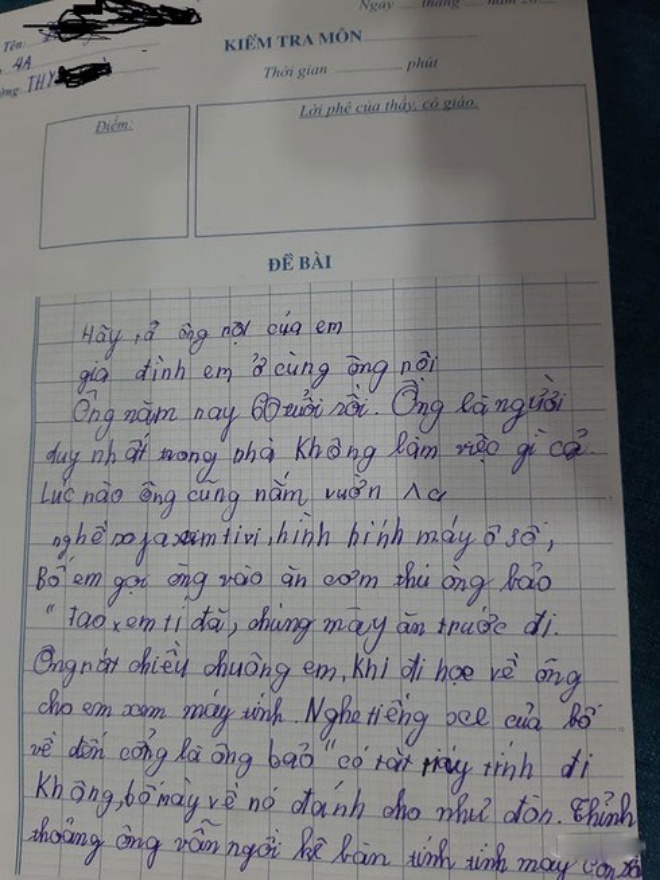 Ngày ... tháng ... năm 20
Tên:
4A
ờng THY
KIỂM TRA MÔN
Thời gian ... phút
Điểm:
Lời phê của thầy, cô giáo.
ĐỀ BÀI
Hãy tả ông nội của em
gia đình em ở cùng ông nội
Ông năm nay 60 tuổi rồi. Ông là người
duy nhất trong nhà không làm việc gì cả.
Lúc nào ông cũng nằm vươn ra
xem tivi, hình hính máy ô số,
Bố em gọi ông vào ăn cơm thì ông bảo
"Tao xem tí đã, chúng mày ăn trước đi.
Ông rất chiều chuông em, khi đi học về ông
cho em xem máy tính. Nghe tiếng xe của bố
về đến cổng là ông bảo "có tắt máy tính đi
không, bố mày về nó đánh cho như đòn. Thỉnh
thoảng ông vẫn ngồi kê bàn tính tính may